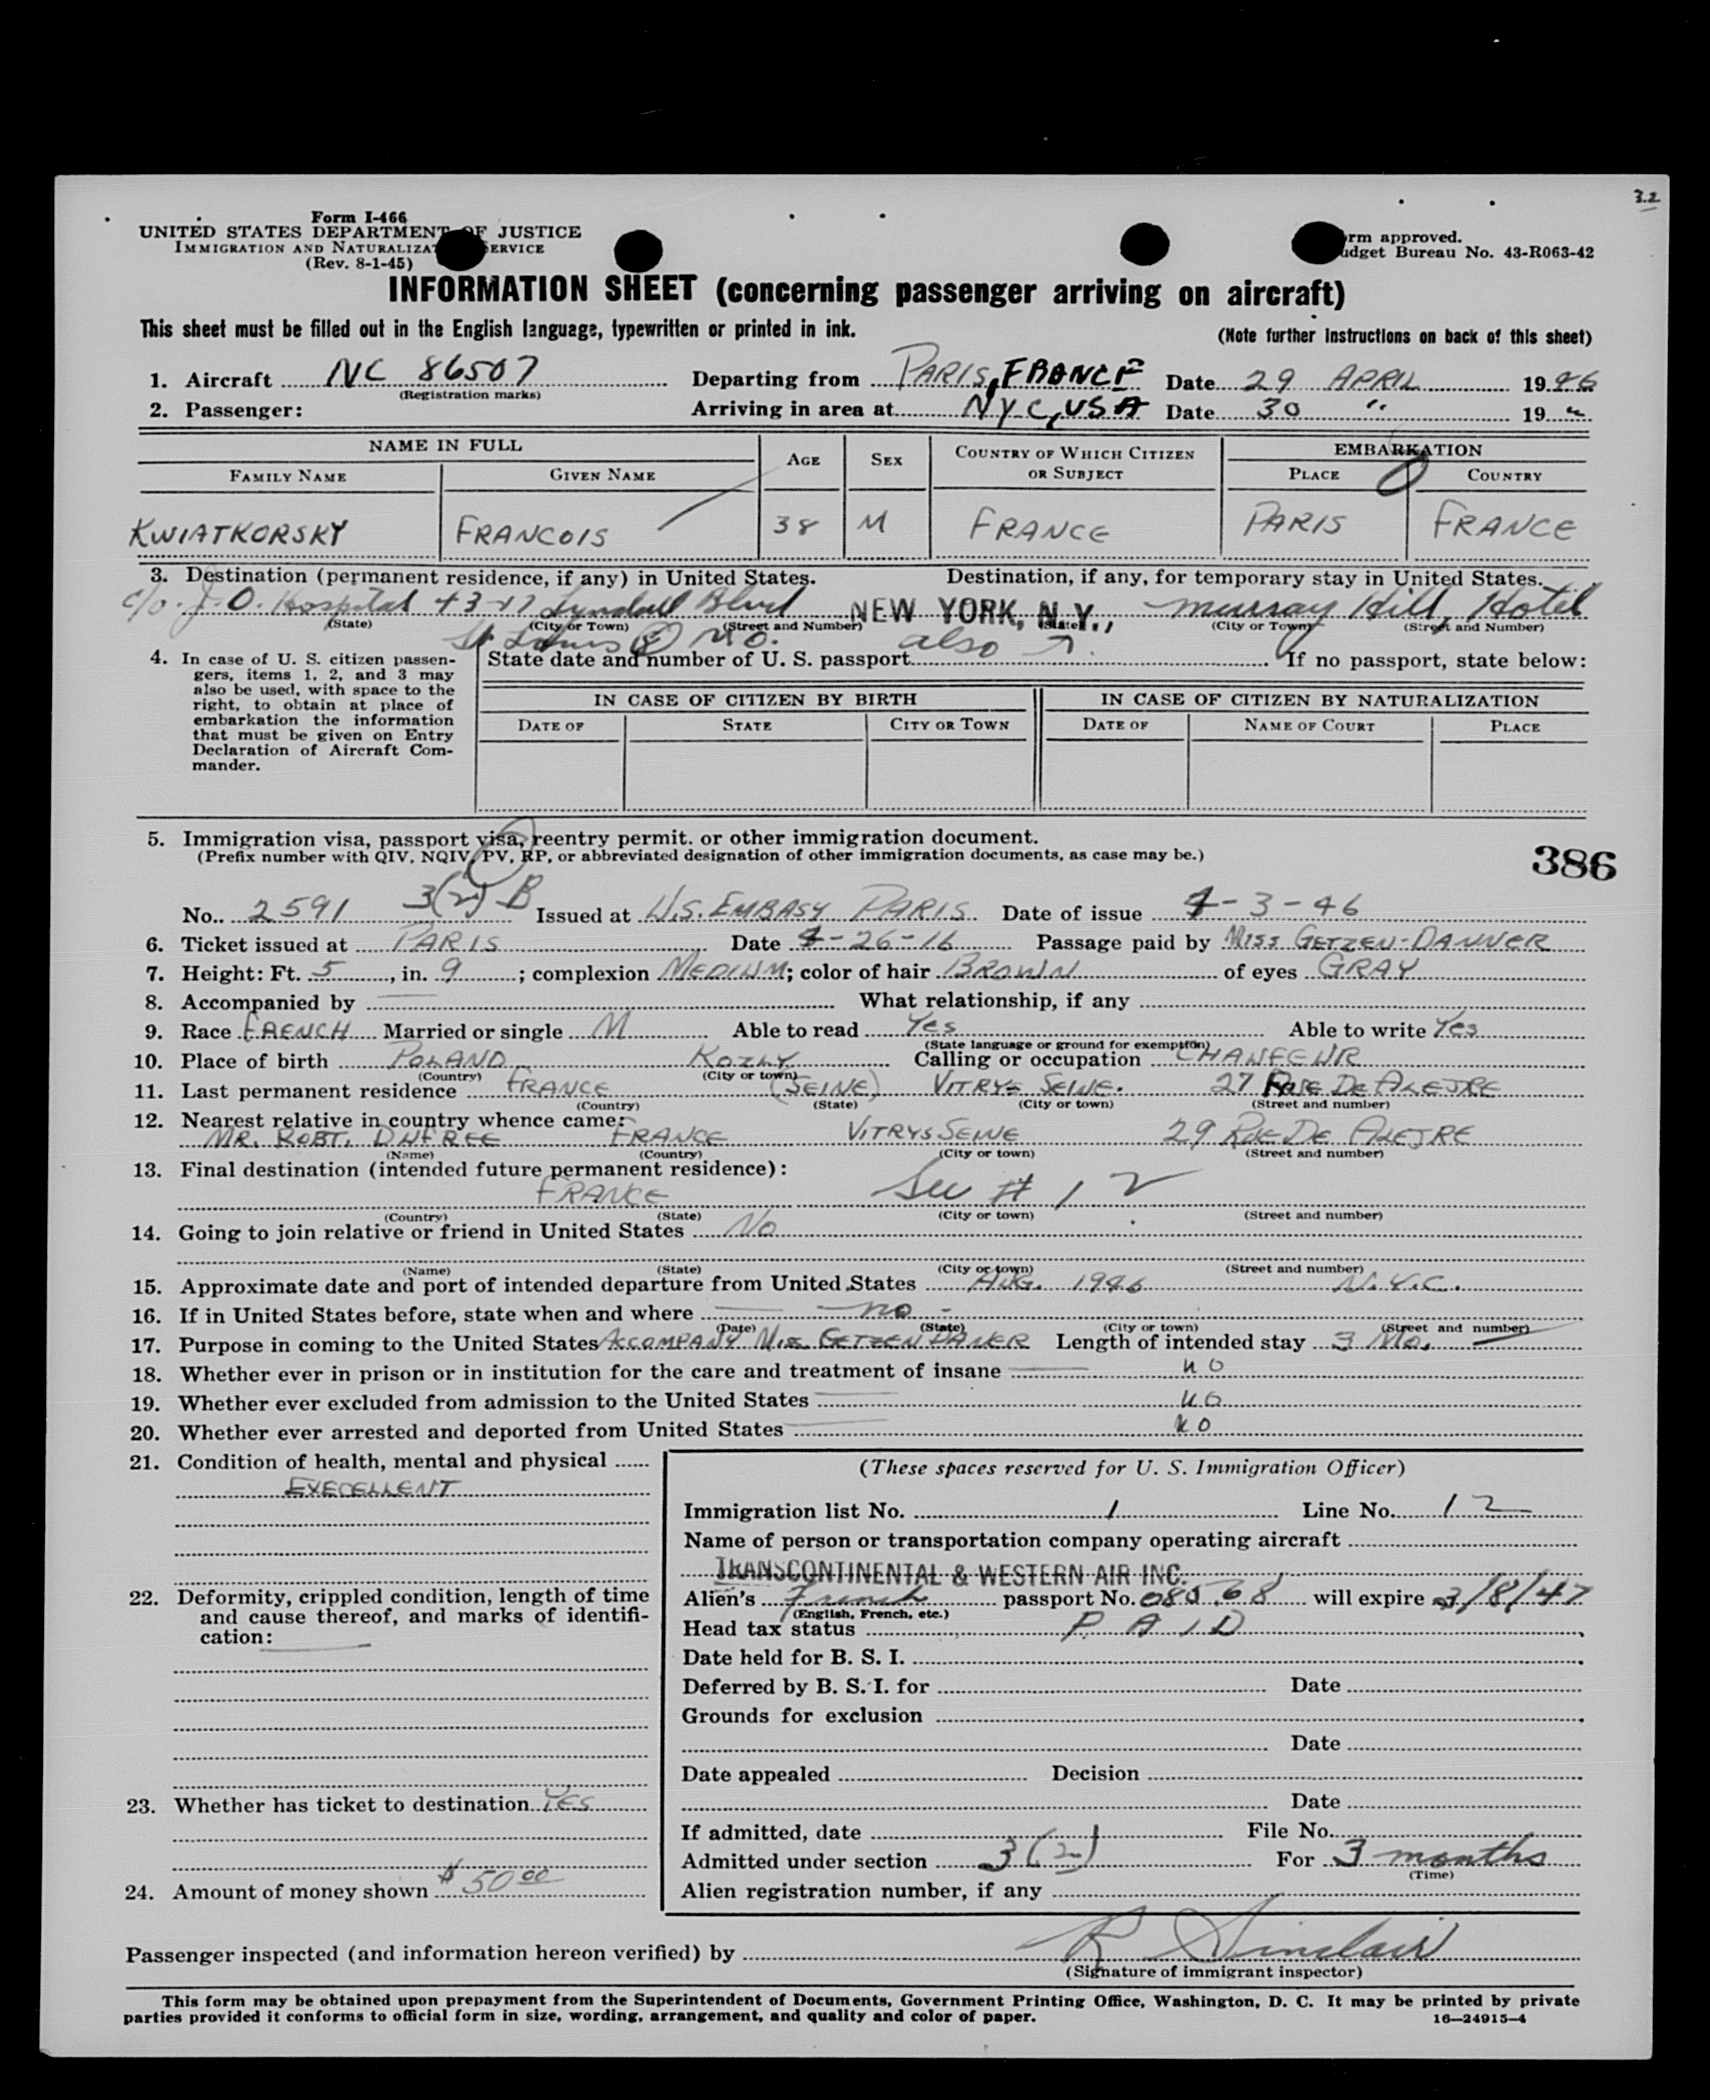 3.2
Form I-466
UNITED STATES DEPARTMENT OF JUSTICE
IMMIGRATION AND NATURALIZAT SERVICE
(Rev. 8-1-45)
rm approved.
udget Bureau No. 43-R063-42
INFORMATION SHEET (concerning passenger arriving on aircraft)
This sheet must be filled out in the English language, typewritten or printed in ink. (Note further instructions on back of this sheet)
1. Aircraft NC 86507 Departing from PARIS, FRANCE Date 29 APRIL 1946
(Registration marks)
2. Passenger: Arriving in area at NYC, USA Date 30 " 19 "
NAME IN FULL AGE SEX COUNTRY OF WHICH CITIZEN OR SUBJECT EMBARKATION
FAMILY NAME GIVEN NAME PLACE COUNTRY
KWIATKORSKY FRANCOIS 38 M FRANCE PARIS FRANCE
3. Destination (permanent residence, if any) in United States. Destination, if any, for temporary stay in United States.
c/o. J.O. Hospital Blvd NEW YORK, N.Y., Murray Hill, Hotel
(State) (City or Town) (Street and Number) (State) (City or Town) (Street and Number)
St Louis MO. also
4. In case of U. S. citizen passen-
gers, items 1, 2, and 3 may
also be used, with space to the
right, to obtain at place of
embarkation the information
that must be given on Entry
Declaration of Aircraft Com-
mander.
State date and number of U. S. passport If no passport, state below:
IN CASE OF CITIZEN BY BIRTH IN CASE OF CITIZEN BY NATURALIZATION
DATE OF STATE CITY OR TOWN DATE OF NAME OF COURT PLACE
5. Immigration visa, passport visa, reentry permit. or other immigration document.
(Prefix number with QIV, NQIV, PV, RP, or abbreviated designation of other immigration documents, as case may be.)
386
No. 2591 3(2) B Issued at U.S. EMBASY PARIS Date of issue 4-3-46
6. Ticket issued at PARIS Date 4-26-16 Passage paid by MISS GETZEN-DANNER
7. Height: Ft. 5, in. 9; complexion MEDIUM; color of hair BROWN of eyes GRAY
8. Accompanied by What relationship, if any
9. Race FRENCH Married or single M Able to read Yes Able to write Yes
(State language or ground for exemption)
10. Place of birth POLAND KOZLY Calling or occupation CHAWFEUR
(Country) (City or town)
11. Last permanent residence FRANCE (SEINE) VITRY-SEINE. 27 RUE DE ALEJRE
(Country) (State) (City or town) (Street and number)
12. Nearest relative in country whence came:
MR. ROBT. DUFREE FRANCE VITRYSSEINE 29 RUE DE ALEJRE
(Name) (Country) (City or town) (Street and number)
13. Final destination (intended future permanent residence):
FRANCE See # 12
(Country) (State) (City or town) (Street and number)
14. Going to join relative or friend in United States No
(Name) (State) (City or town) (Street and number)
15. Approximate date and port of intended departure from United States AUG. 1946 N.Y.C.
16. If in United States before, state when and where no
(Date) (State) (City or town) (Street and number)
17. Purpose in coming to the United States ACCOMPANY MIS GETZENDANER Length of intended stay 3 Mo.
18. Whether ever in prison or in institution for the care and treatment of insane no
19. Whether ever excluded from admission to the United States no
20. Whether ever arrested and deported from United States no
21. Condition of health, mental and physical
EXECELLENT
22. Deformity, crippled condition, length of time
and cause thereof, and marks of identifi-
cation:
23. Whether has ticket to destination YES
24. Amount of money shown $50.00
(These spaces reserved for U. S. Immigration Officer)
Immigration list No. 1 Line No. 12
Name of person or transportation company operating aircraft
TRANSCONTINENTAL & WESTERN AIR INC.
Alien's French passport No. 08568 will expire 3/8/47
(English, French, etc.)
Head tax status PAID
Date held for B. S. I.
Deferred by B. S. I. for Date
Grounds for exclusion
Date
Date appealed Decision
Date
If admitted, date File No.
Admitted under section 3(2) For 3 months
(Time)
Alien registration number, if any
Passenger inspected (and information hereon verified) by R Sinclair
(Signature of immigrant inspector)
This form may be obtained upon prepayment from the Superintendent of Documents, Government Printing Office, Washington, D. C. It may be printed by private
parties provided it conforms to official form in size, wording, arrangement, and quality and color of paper.
16—24915-4